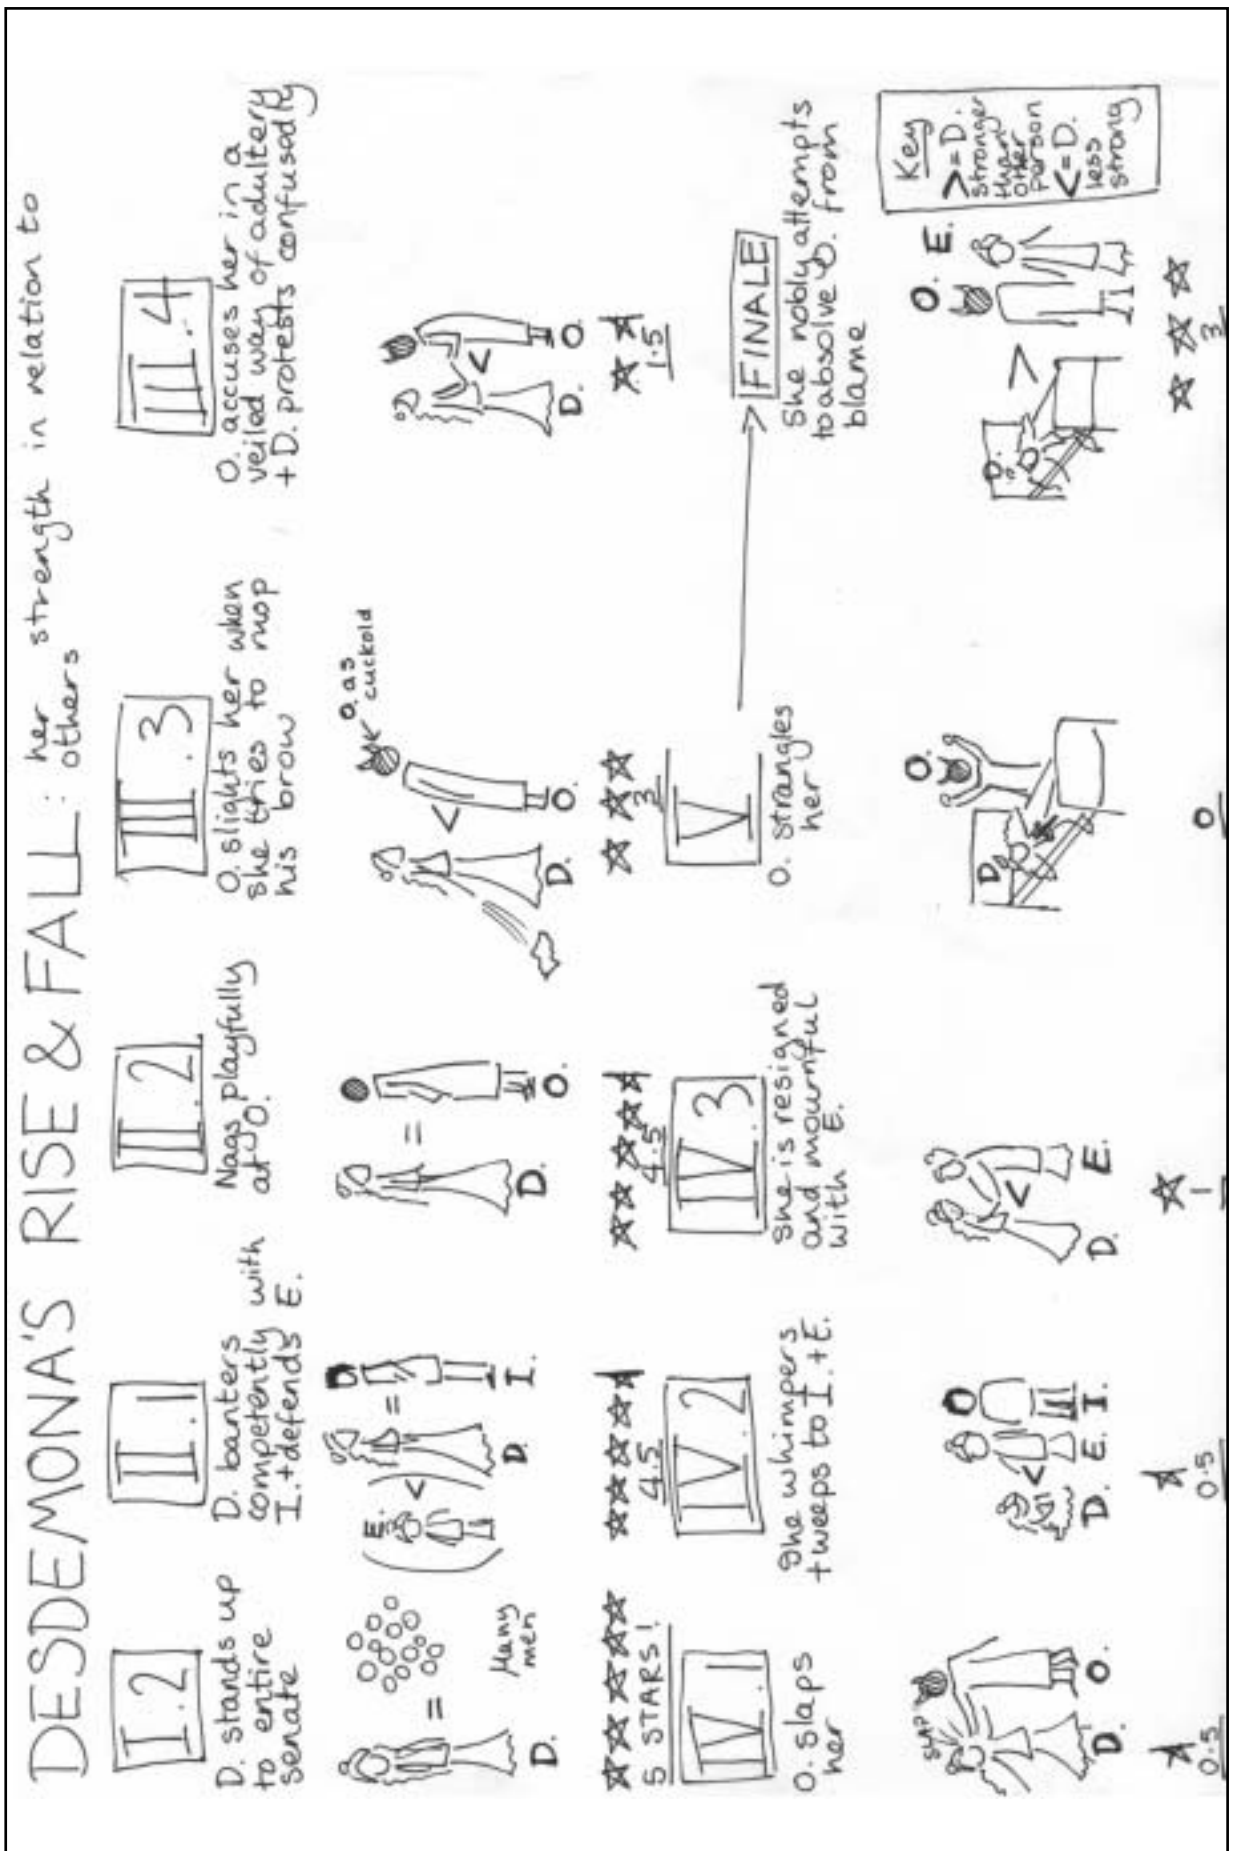 DESDEMONA'S RISE & FALL: her strength in relation to
others
I.2
D. stands up
to entire
senate
=
D.
Many
men
5 STARS!
II.1
D. banters
competently with
I. + defends E.
E.
<
=
D.
I.
4.5
II.2
Nags playfully
at O.
=
D.
O.
4.5
III.3
O. slights her when
she tries to mop
his brow
O. as
cuckold
<
D.
O.
3
III.4
O. accuses her in a
veiled way of adultery
+ D. protests confusedly
<
D.
O.
1.5
IV.1
O. slaps
her
SLAP
D.
O.
0.5
IV.2
She whimpers
+ weeps to I. + E.
<
D.
E.
I.
0.5
IV.3
She is resigned
and mournful
with E.
<
D.
E.
1
V
O. strangles
her
O.
D.
0
FINALE
She nobly attempts
to absolve O. from
blame
D.
>
O.
E.
3
Key
> = D.
stronger
than
other
person
< = D.
less
strong